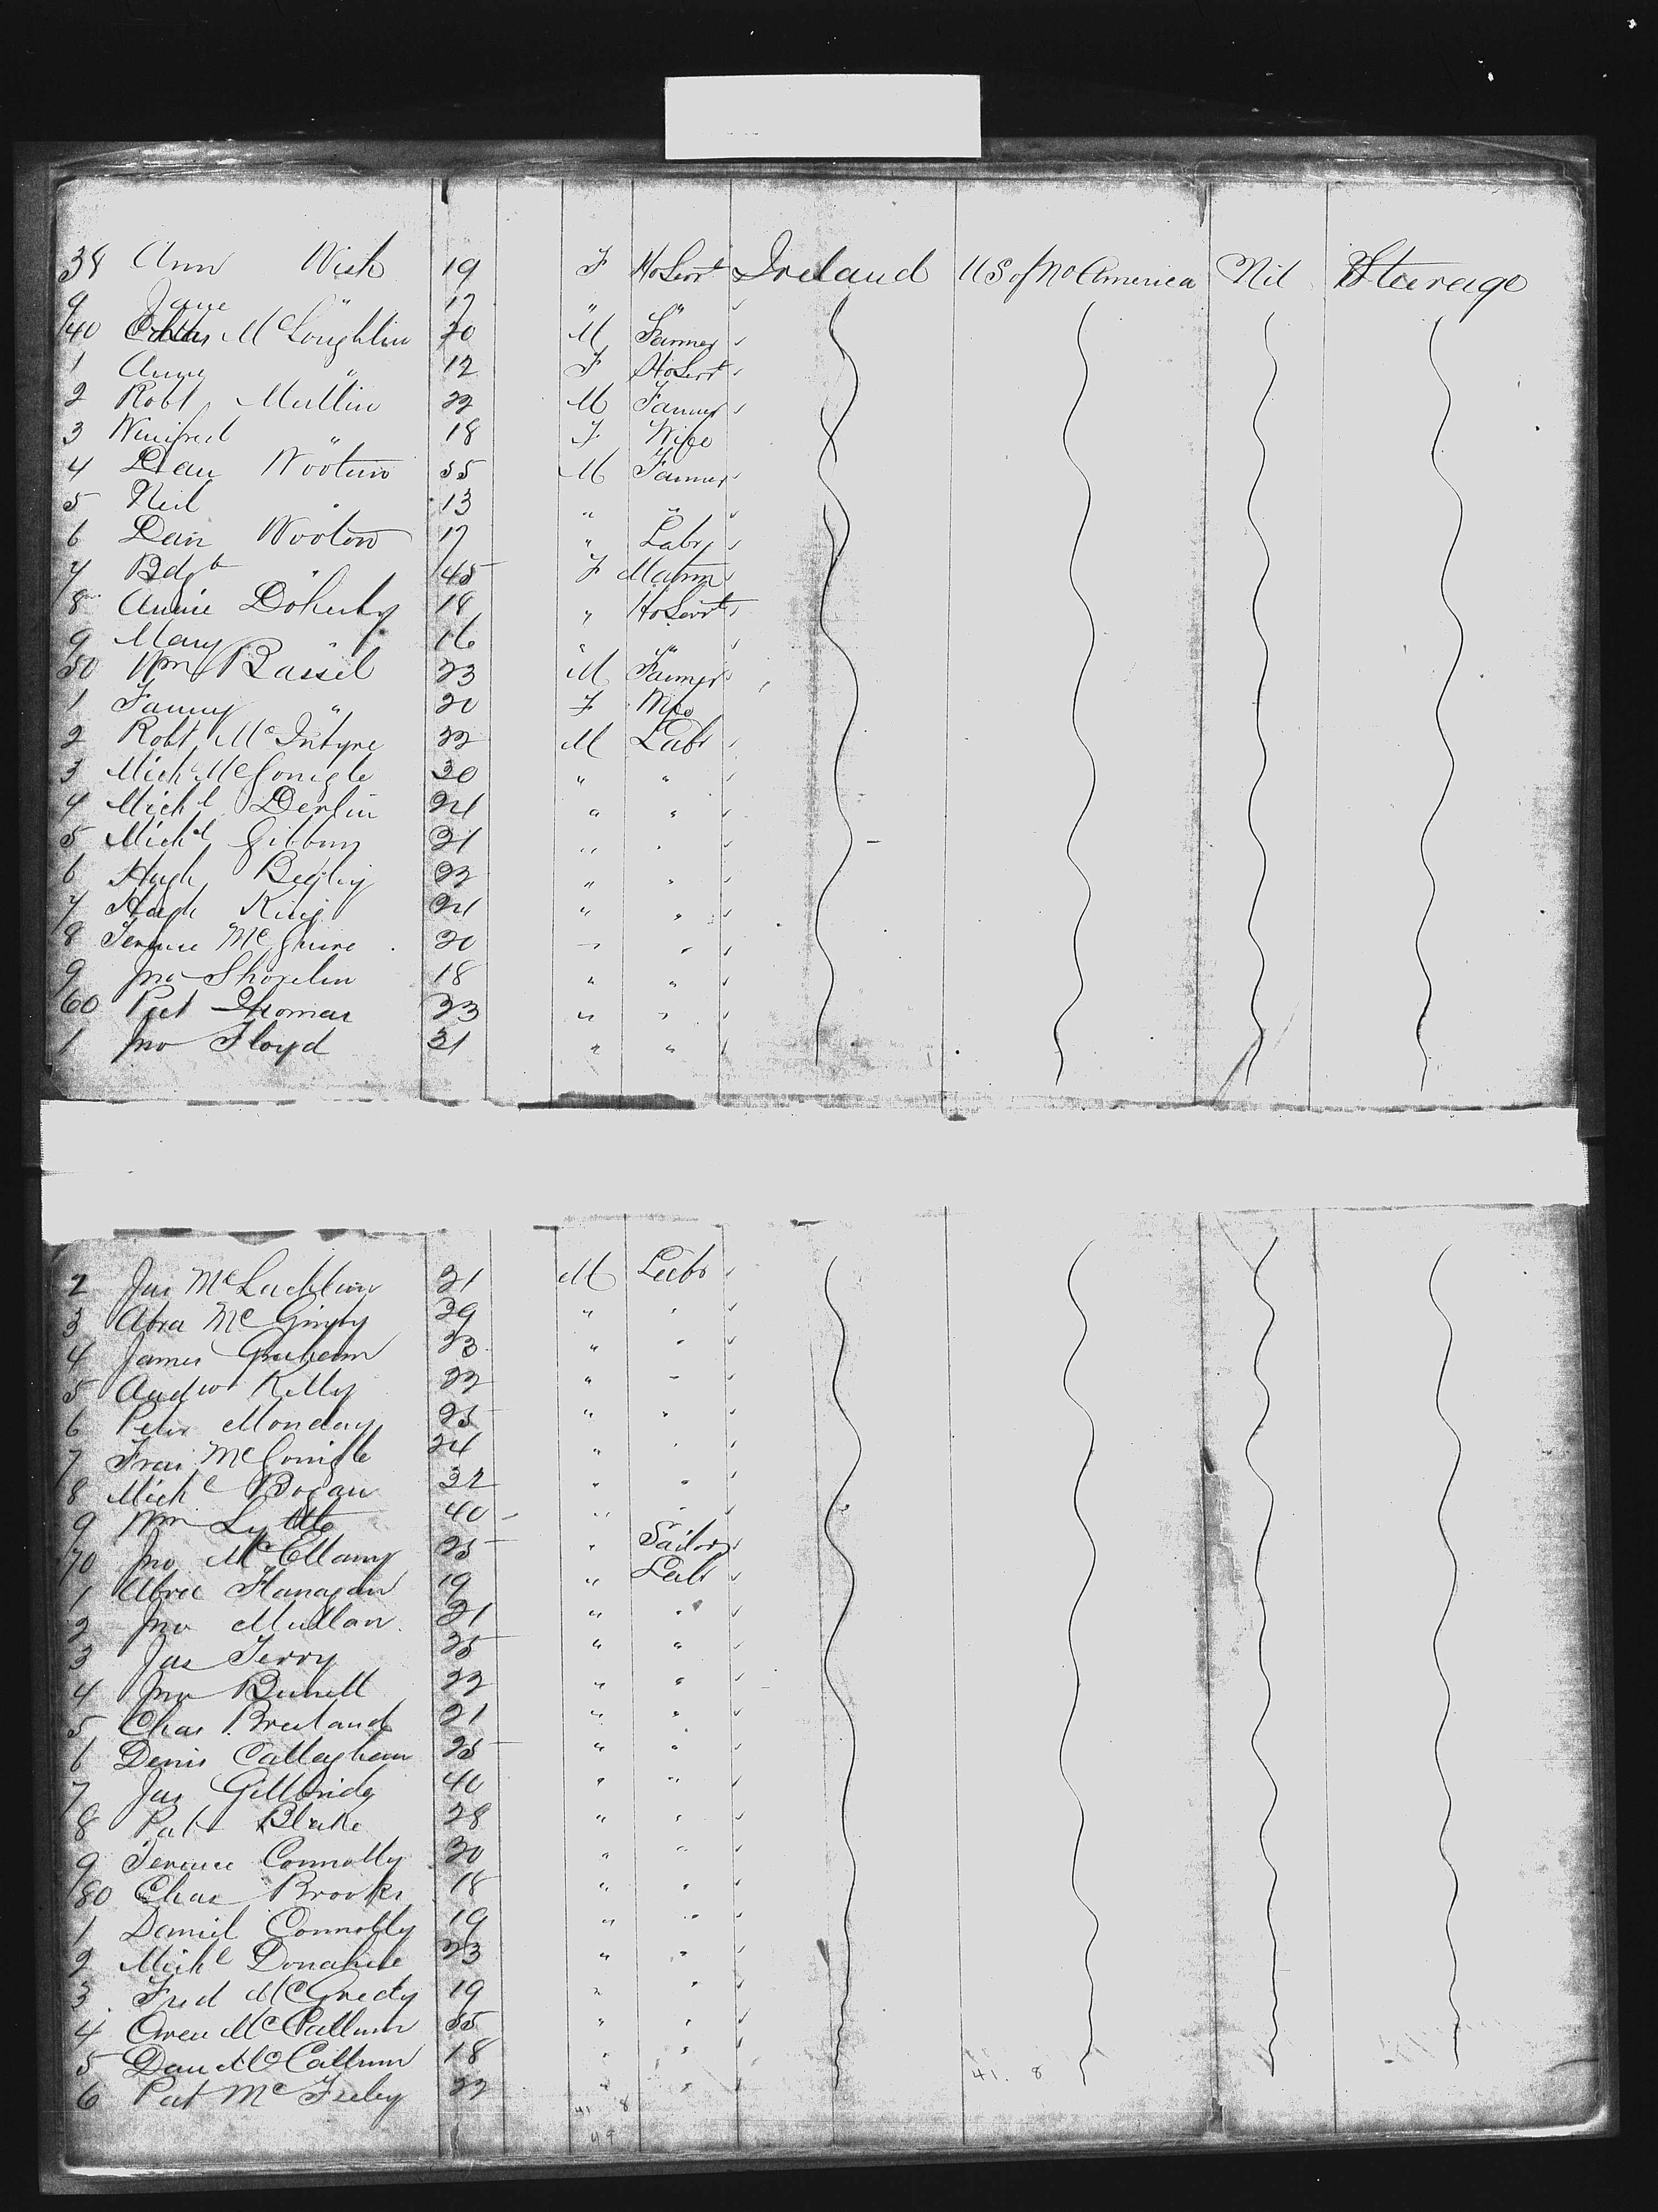 38 Ann Wish 19 F HoServt Ireland US of No America Nil Steerage
9 Jane " 17 " "
40 McLoughlin 20 M Farmer
1 Anny " 12 F HoServt
2 Robt Mullin 22 M Farmer
3 Winifred " 18 F Wife
4 Dan Wooton 55 M Farmer
5 Neil " 13 " "
6 Dan Wooton 17 " Labr
7 Bdgt " 45 F Matrn
8 Annie Doherty 18 " HoServt
9 Mary " 16 " "
50 Wm Bassel 23 M Farmer
1 Fanny " 20 F
2 Robt McIntyre 22 M Labr
3 Michl McGonigle 30 " "
4 Michl Devlin 24 " "
5 Michl Gibbons 21 " "
6 Hugh Begley 22 " "
7 Hugh King 24 " "
8 Terence McGuire 20 " "
9 Jno 18 " "
60 Pat Thomas 23 " "
1 Jno Floyd 31 " "
2 Jas McLachlin 21 M Labr
3 Abra McGinty 29 " "
4 James Graham 23 " "
5 Andw Kelly 22 " "
6 Peter Monday 25 " "
7 Fras McGonigle 24 " "
8 Michl Bogan 32 " "
9 Wm Lyttle 40 " "
70 Jno 25 " Sailor
1 Flanagan 19 " Labr
2 Jno Mullan 21 " "
3 Jas Terry 25 " "
4 Jno 22 " "
5 Chas Breeland 21 " "
6 Denis Callaghan 25 " "
7 Jas Gillbride 40 " "
8 Pat Blake 28 " "
9 Terence Connolly 30 " "
80 Chas Brooks 18 " "
1 Daniel Connolly 19 " "
2 Michl Donahue 23 " "
3 Fred McGredy 19 " "
4 Owen McCallum 55 " "
5 Dan McCallum 18 " "
6 Pat McFeeley 22 " "
41. 8
41 8
49